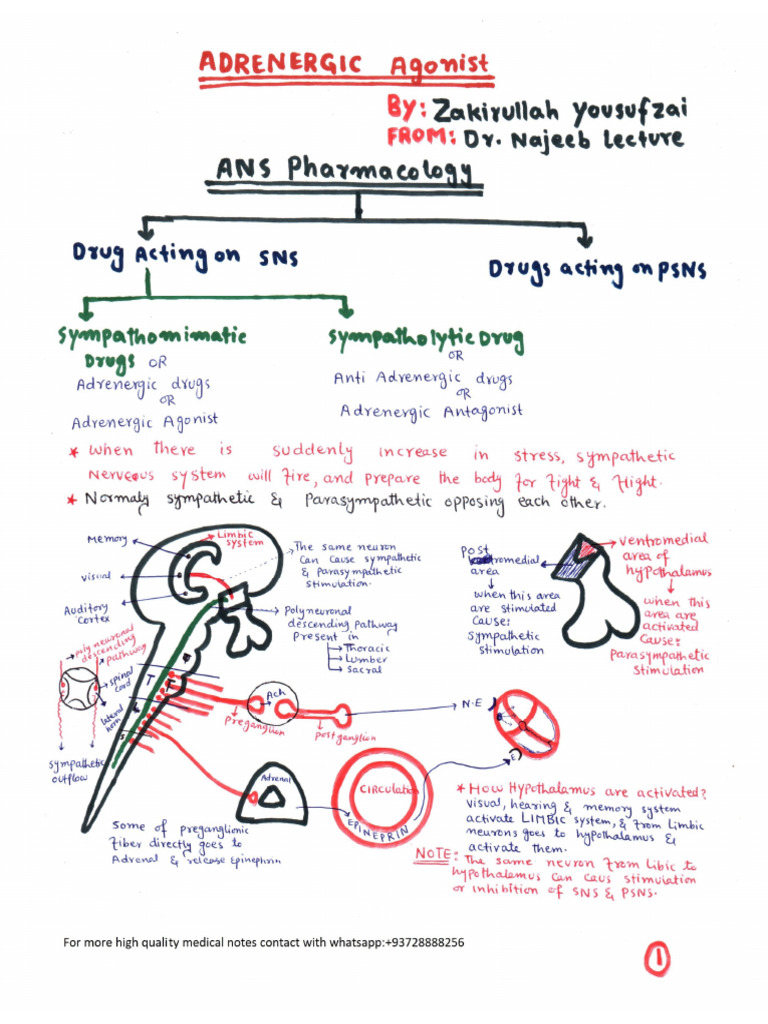 ADRENERGIC Agonist
BY: Zakirullah Yousufzai
FROM: Dr. Najeeb Lecture
ANS Pharmacology
Drug Acting on SNS
Drugs acting on PSNS
Sympathomimatic
Drugs OR
Adrenergic drugs
OR
Adrenergic Agonist
Sympatholytic Drug
OR
Anti Adrenergic drugs
OR
Adrenergic Antagonist
* When there is suddenly increase in stress, sympathetic
Nerveous system will fire, and prepare the body for fight & flight.
* Normaly sympathetic & Parasympathetic opposing each other.
Memory
Limbic
system
visual
Auditory
cortex
The same neuron
can cause sympathetic
& parasympathetic
stimulation.
Polyneuronal
descending pathway
Present in
Thoracic
Lumber
Sacral
Post
tromedial
area
when this area
are stimulated
cause:
sympathetic
stimulation
ventromedial
area of
hypothalamus
when this
area are
activated
cause:
Parasympathetic
stimulation
polyneuronal
descending
pathway
spinal
cord
lateral
horn
sympathetic
outflow
T
T
L
S
Preganglion
Ach
Postganglion
N.E
E
Adrenal
CIRCULATION
EPINEPRIN
Some of preganglionic
fiber directly goes to
Adrenal & release Epinephrin
* How Hypothalamus are activated?
visual, hearing & memory system
activate LIMBIC system, & from Limbic
neurons goes to hypothalamus &
activate them.
NOTE: The same neuron from Libic to
hypothalamus can caus stimulation
or inhibition of SNS & PSNS.
For more high quality medical notes contact with whatsapp:+93728888256
1